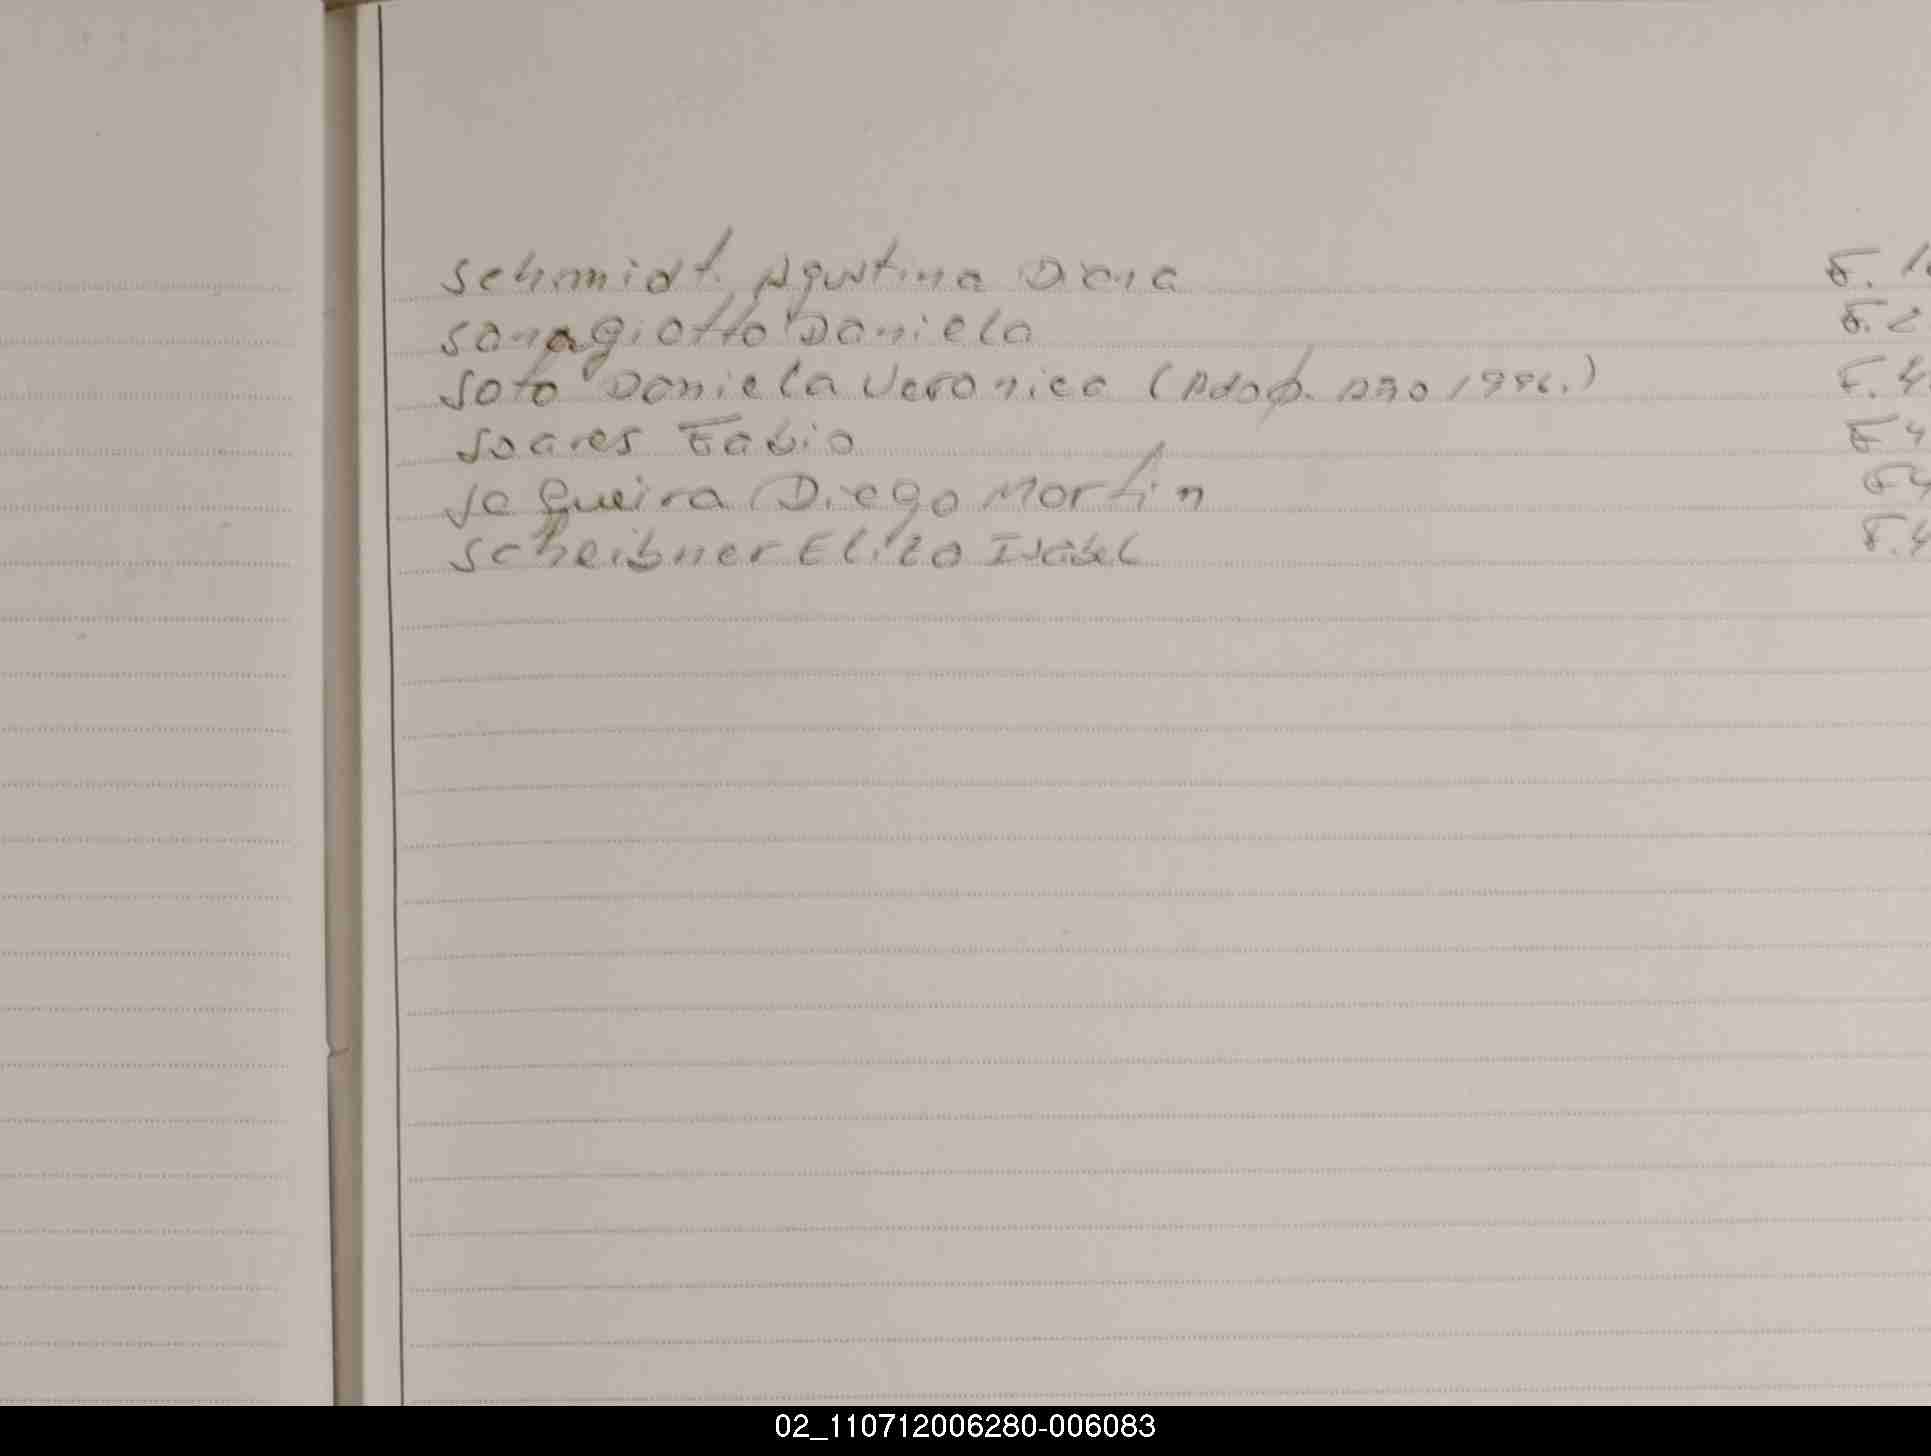 Schmidt Agustina Diana F. 1
Sanagiotto Daniela F. 2
Soto Daniela Veronica (Adop. Año 1996.) F. 4
Soares Fabio F 4
Sequeira Diego Martin F 4
Scheibner Eliza Isabel F. 4
02_110712006280-006083